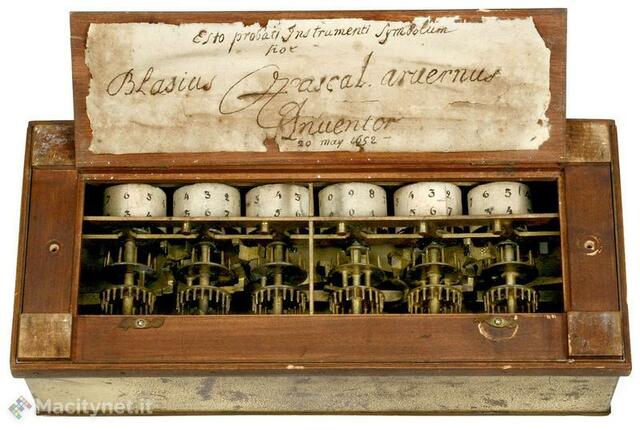 Esto probati Instrumenti Symbolum
hoc
Blasius Pascal. arvernus
Inventor
20 may 1652
7 6 3 4 3 2 3 4 3 0 9 8 4 3 2 7 6 5
3 4 4 5 6 7 4 5 0 0 1 5 6 7
Macitynet.it